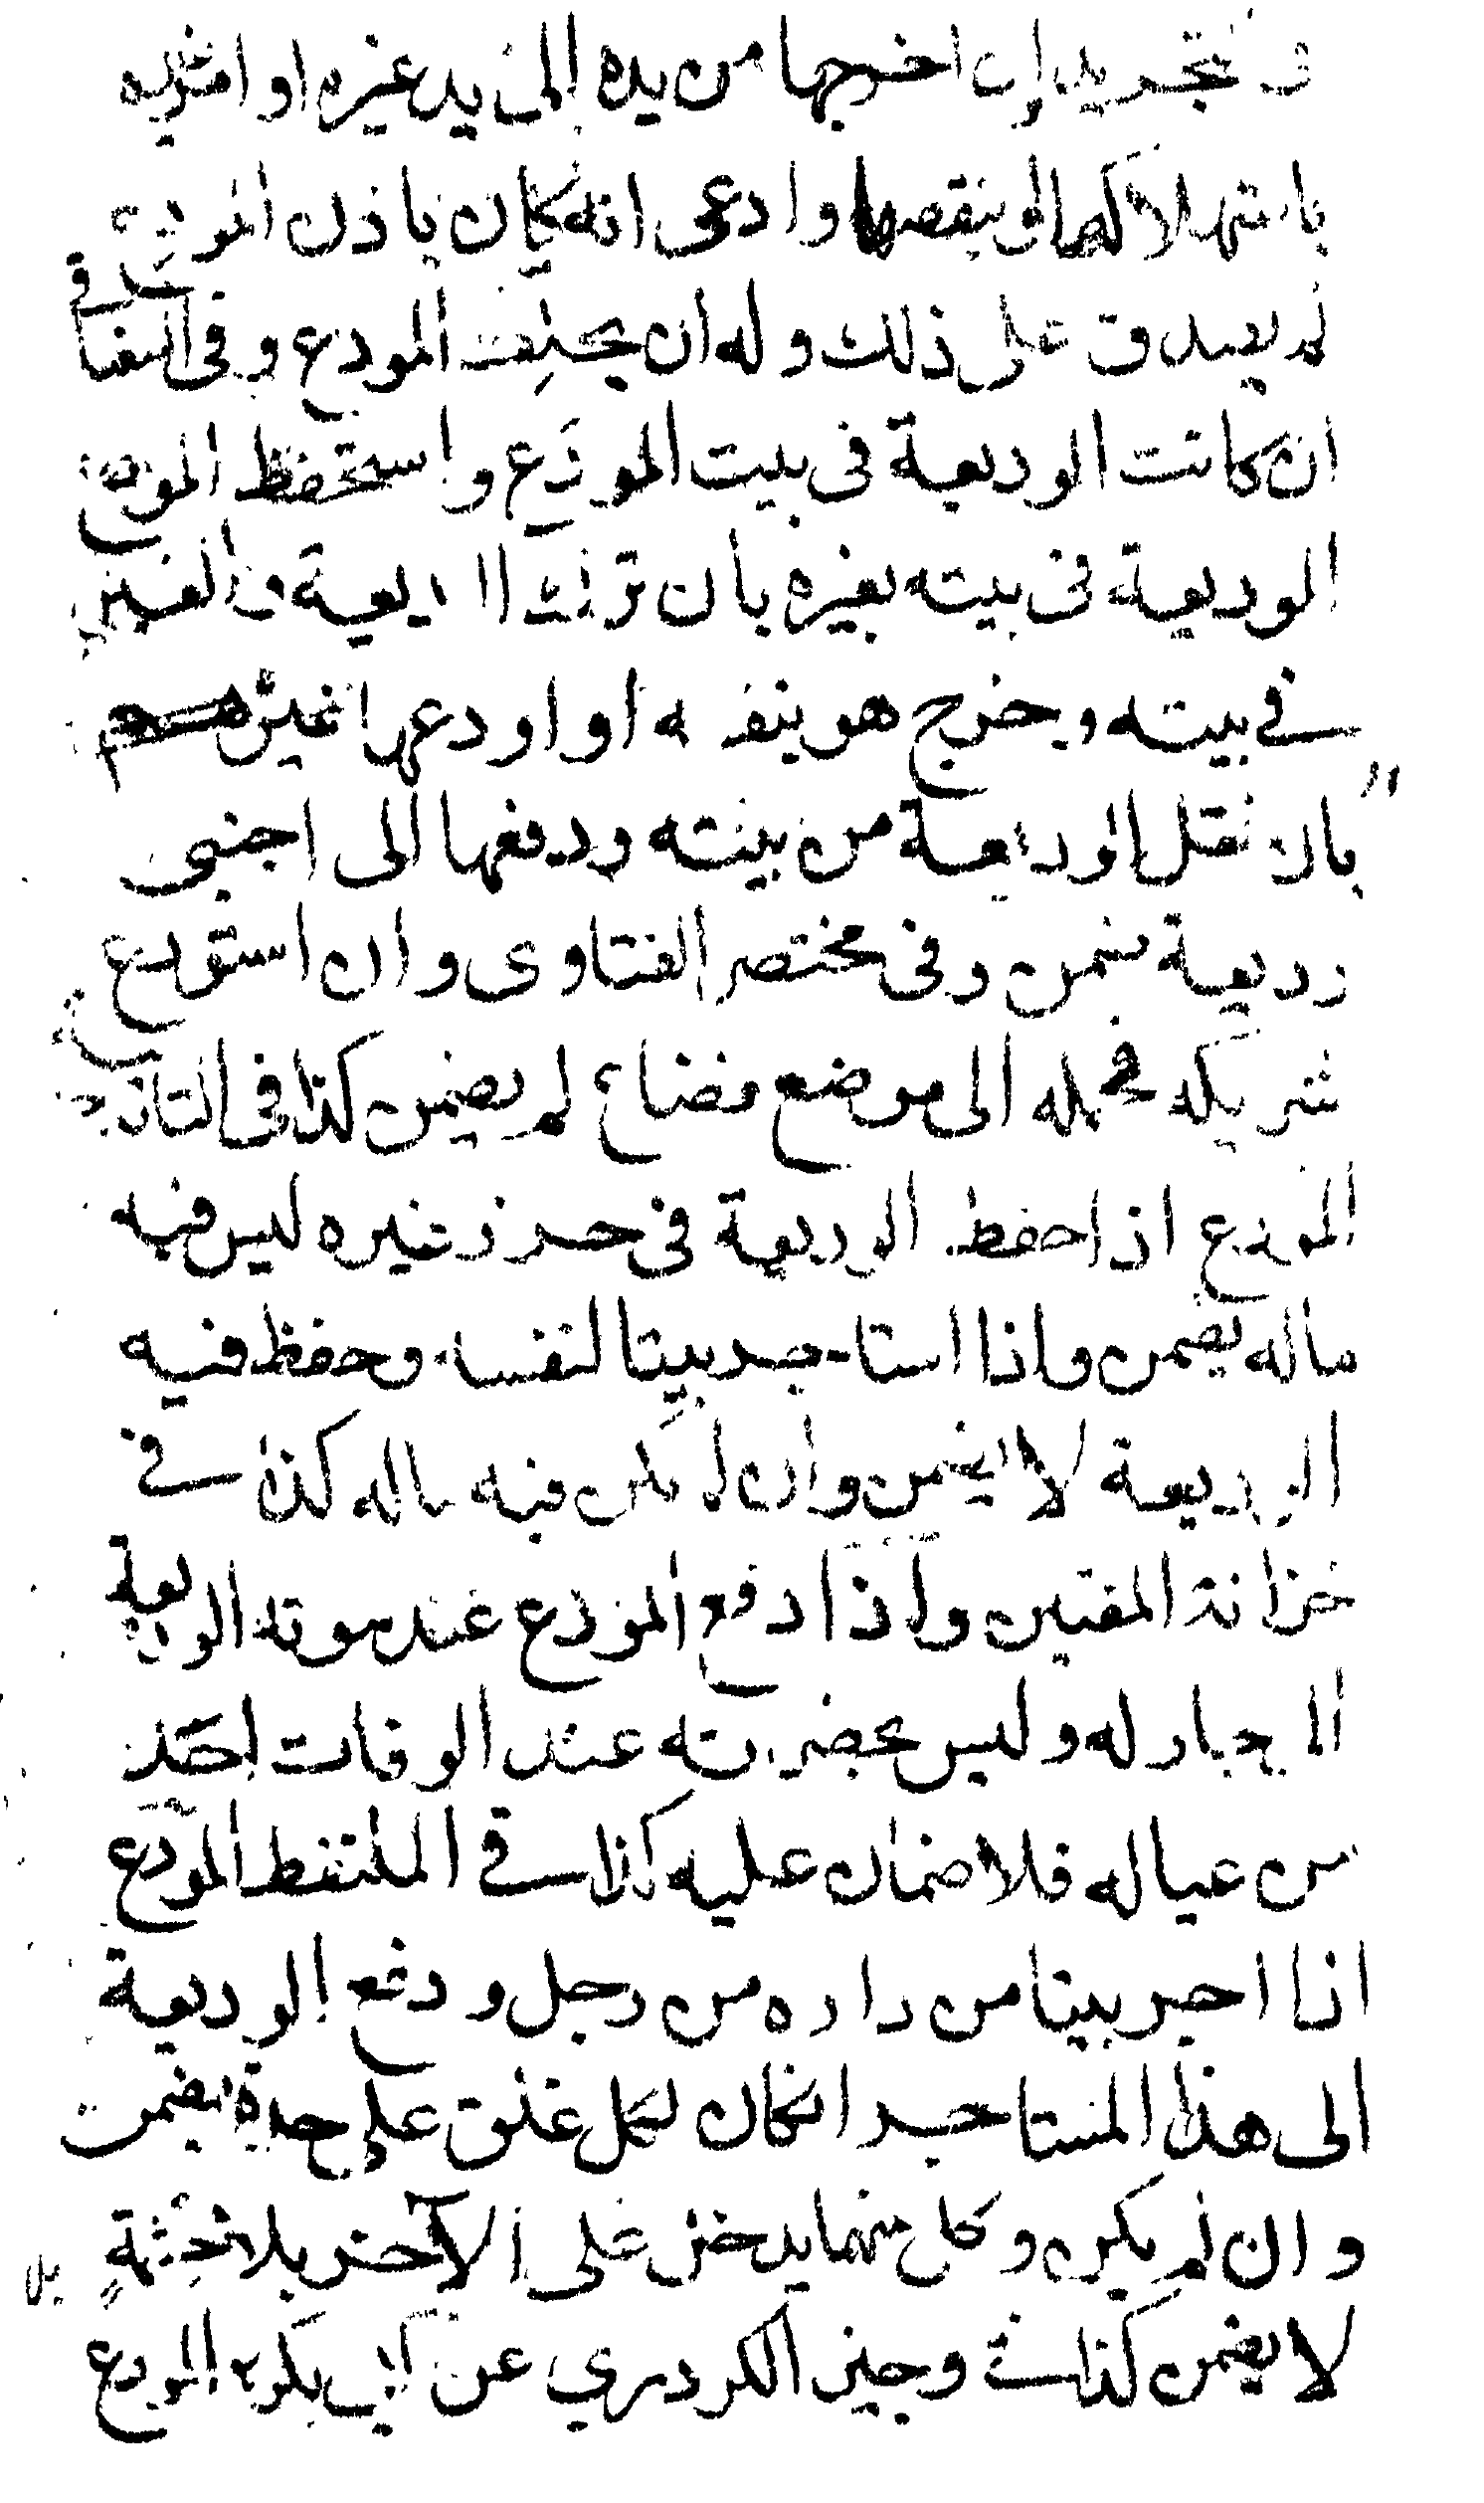 اخرجها من يده إلى يد غيره او
وادعى انه كان باذن المودع
لم يصدق على ذلك وله ان يحلف المودع وفى
ان كانت الوديعة فى بيت المودع واستحفظ المودع
الوديعة فى بيته بغيره بان ترك الوديعة والغير
فى بيته وخرج هو بنفسه او اودعها غيره
بان نقل الوديعة من بيته ودفعها الى اجنبى
وديعة يضمن وفى مختصر الفتاوى وان استودع
شريكه فحمله الى موضع فضاع لم يضمن كذا فى
المودع اذا حفظ الوديعة فى حرز غيره ليس فيه
ماله يضمن واذا استاجر بيتا لنفسه وحفظ فيه
الوديعة لا يضمن وان لم يكن فيه ماله كذا فى
خزانة المفتين واذا دفع المودع عند موته الوديعة
الى جار له وليس بحضرته عند الوفات احد
من عياله فلا ضمان عليه كذا فى الملتقط المودع
اذا اجر بيتا من داره من رجل ودفع الوديعة
الى هذا المستاجر انكان لكل غلق على حدة يضمن
وان لم يكن وكل منهما يدخل على الآخر بلا حشمة
لا يضمن كذا فى وجيز الكردري عن ابى بكر المودع